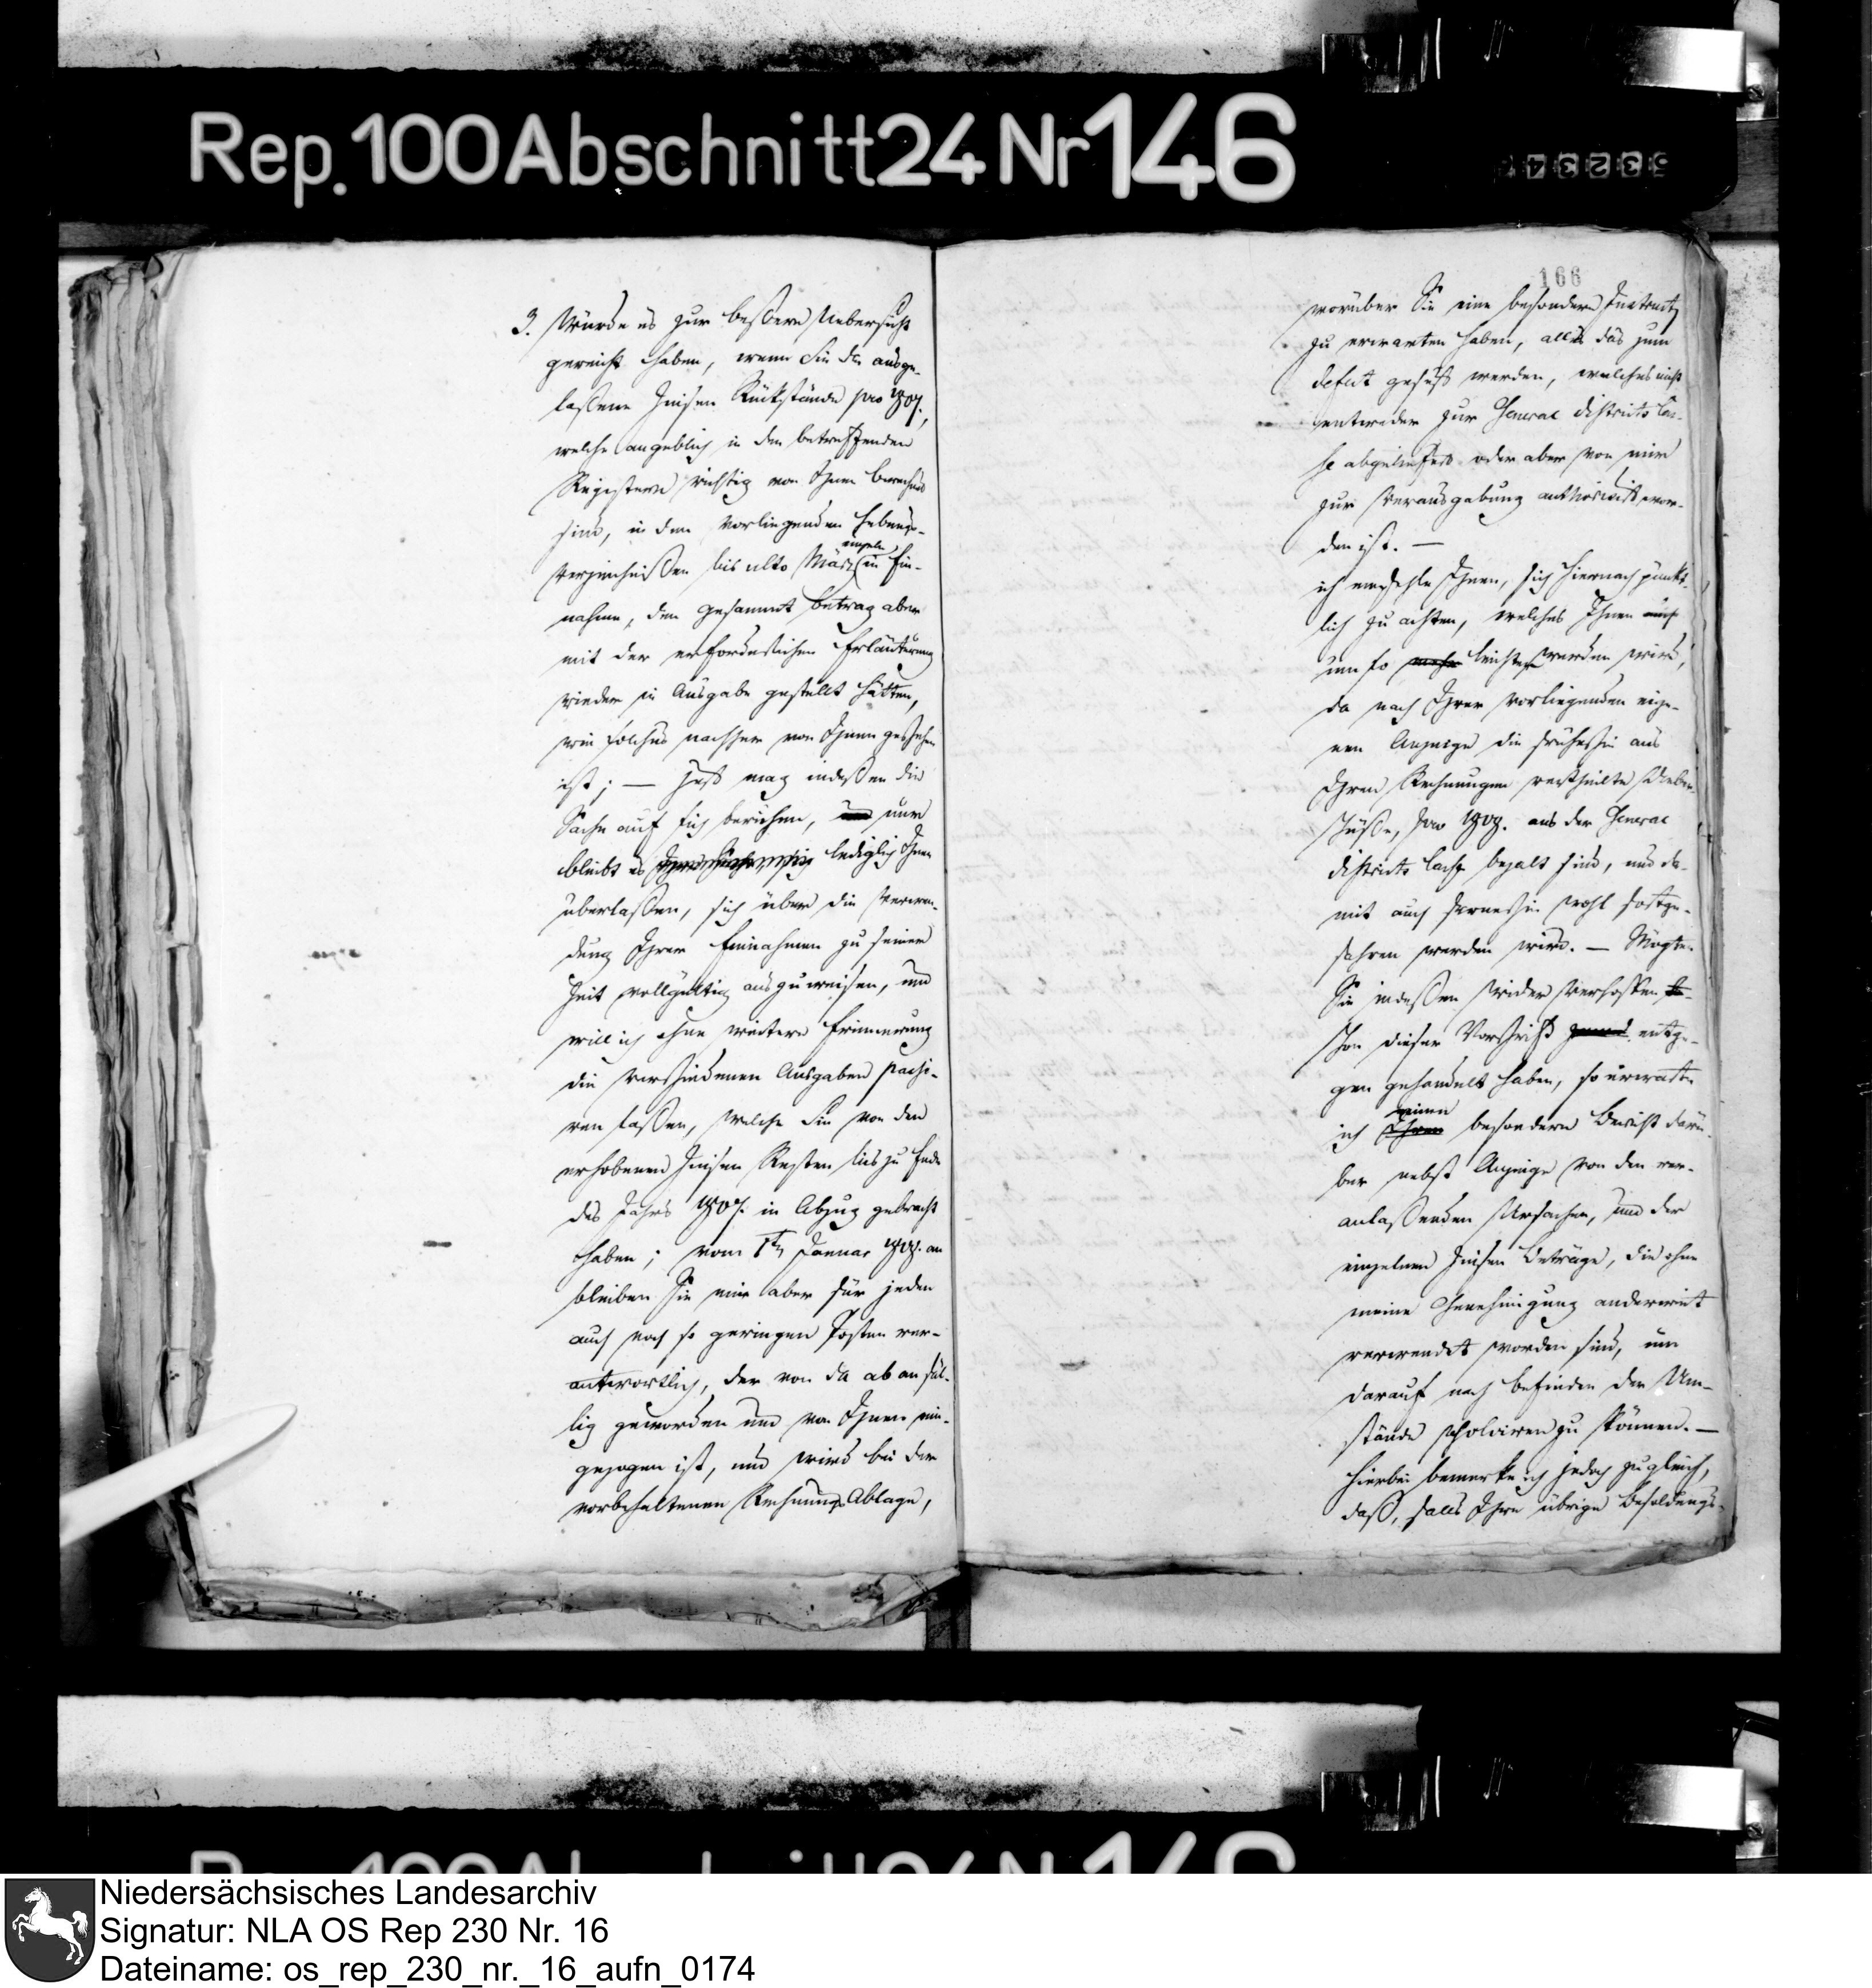 Rep. 100 Abschnitt 24 Nr 146
53234
3. Würde es zur beßeren Uebersicht
gereicht haben, wenn Sie die ausge-
laßenen Zinsen Rückstände pro 1807,
welche angeblich in den betreffenden
Registern richtig von Ihnen berechnet
sind, in den vorliegenden Hebungs-
Verzeichnißen bis ulto März
einzeln
in Ein-
nahme, den gesammt Betrag aber
mit der erforderlichen Erläuterung
wieder in Ausgabe gestellt hätten,
wie solches nachher von Ihnen geschehen
ist; — Jetzt mag indeßen die
Sache auf sich beruhen, und nur
bleibt es lediglich Ihnen
überlaßen, sich über die Verwen-
dung Ihrer Einnahmen zu seiner
Zeit vollgültig auszuweisen, und
will ich ohne weitere Erinnerung
die verschiedenen Ausgaben passi-
ren laßen, welche Sie von den
erhobenen Zinsen Resten bis zu Ende
des Jahrs 1807. in Abzug gebracht
haben; vom 1ten Januar an
bleiben Sie mir aber für jeden
auch noch so geringen Posten ver-
antwortlich, der von da ab an fäl-
lig geworden und von Ihnen ein-
gezogen ist, und wird bei der
vorbehaltenen Rechnungs Ablage,
166
worüber Sie eine besondere Instruct.
zu erwarten haben, alles das zum
defect gesetzt werden, welches nicht
entweder zur General Districts Cas-
se abgeliefert oder aber von mir
zur Verausgabung authorisirt wor-
den ist. —
ich empfehle Ihnen, sich hiernach pünkt-
lich zu achten, welches Ihnen auch
um so mehr leichter werden wird,
da nach Ihrer vorliegenden eige-
nen Anzeige die frühern aus
Ihren Rechnungen Ueber-
schüße, pro aus der General
Districts Casse bezalt sind, und da-
mit auch fernerhin wohl fortge-
fahren werden wird. — Mögten
Sie indeßen wider Verhoffen
schon dieser Vorschrift entge-
gen gehandelt haben, so erwarte
ich
einen
Ihren besondern Bericht darü-
ber nebst Anzeige von den ver-
anlaßenden Ursachen, und der
einzelnen Zinsen Beträge, die ohne
meine Genehmigung anderweit
verwendet worden sind, um
darauf nach Befinden der Um-
stände resolviren zu können. —
Hierbei bemerke ich jedoch zugleich,
daß, falls Ihre übrige Besoldungs-
Niedersächsisches Landesarchiv
Signatur: NLA OS Rep 230 Nr. 16
Dateiname: os_rep_230_nr._16_aufn_0174